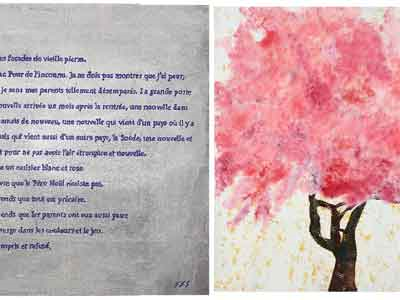 es façades de vieille pierre.
Peur de l'inconnu. Je ne dois pas montrer que j'ai peur,
je sens mes parents tellement désemparés. La grande porte
nouvelle arrivée un mois après la rentrée, une nouvelle dans
de nouveau, une nouvelle qui vient d'un pays où il y a
qui vient aussi d'un autre pays, la Suède, une nouvelle et
pour ne pas avoir l'air étrangère et nouvelle.
un cerisier blanc et rose
que le Père Noël n'existe pas.
que tout est précaire.
que les parents ont eux aussi peur
dans les couleurs et le jeu.
et refusé.